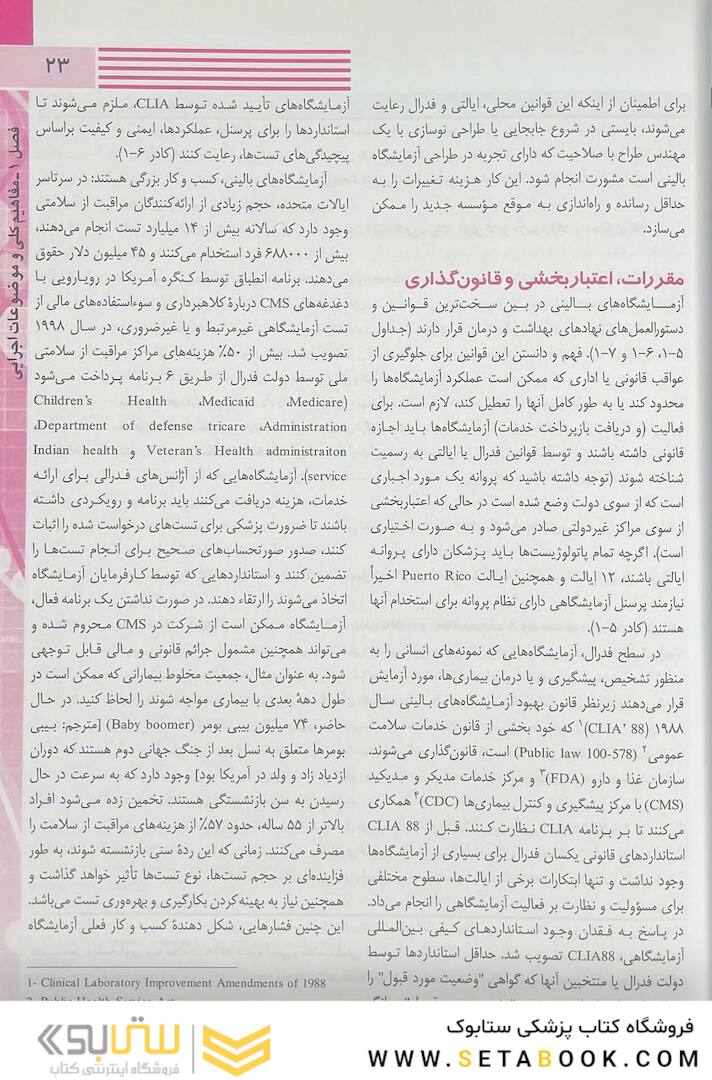 ۲۳
فصل ۱ ـ مفاهیم کلی و موضوعات اجرایی
برای اطمینان از اینکه این قوانین محلی، ایالتی و فدرال رعایت
می‌شوند، بایستی در شروع جابجایی یا طراحی نوسازی با یک
مهندس طراح با صلاحیت که دارای تجربه در طراحی آزمایشگاه
بالینی است مشورت انجام شود. این کار هزینه تغییرات را به
حداقل رسانده و راه‌اندازی به موقع مؤسسه جدید را ممکن
می‌سازد.
مقررات، اعتباربخشی و قانون‌گذاری
آزمـایشگاه‌های بـالینی در بـین سـخت‌ترین قـوانـین و
دستورالعمل‌های نهادهای بهداشت و درمان قرار دارند (جداول
۵-۱، ۶-۱ و ۷-۱). فهم و دانستن این قوانین برای جلوگیری از
عواقب قانونی یا اداری که ممکن است عملکرد آزمایشگاه‌ها را
محدود کند یا به طور کامل آنها را تعطیل کند، لازم است. برای
فعالیت (و دریافت بازپرداخت خدمات) آزمایشگاه‌ها باید اجازه
قانونی داشته باشند و توسط قوانین فدرال یا ایالتی به رسمیت
شناخته شوند (توجه داشته باشید که پروانه یک مورد اجباری
است که از سوی دولت وضع شده است در حالی که اعتباربخشی
از سوی مراکز غیردولتی صادر می‌شود و به صورت اختیاری
است). اگرچه تمام پاتولوژیست‌ها باید پزشکان دارای پروانه
ایالتی باشند، ۱۲ ایالت و همچنین ایالت Puerto Rico اخیراً
نیازمند پرسنل آزمایشگاهی دارای نظام پروانه برای استخدام آنها
هستند (کادر ۵-۱).
در سطح فدرال، آزمایشگاه‌هایی که نمونه‌های انسانی را به
منظور تشخیص، پیشگیری و یا درمان بیماری‌ها، مورد آزمایش
قرار می‌دهند زیرنظر قانون بهبود آزمایشگاه‌های بالینی سال
۱۹۸۸ (CLIA’ 88)۱ که خود بخشی از قانون خدمات سلامت
عمومی۲ (Public law 100-578) است، قانون‌گذاری می‌شوند.
سازمان غذا و دارو (FDA)۳ و مرکز خدمات مدیکر و مدیکید
(CMS) با مرکز پیشگیری و کنترل بیماری‌ها (CDC)۴ همکاری
می‌کنند تا بـر بـرنامه CLIA نظارت کـنند. قـبل از CLIA 88
استانداردهای قانونی یکسان فدرال برای بسیاری از آزمایشگاه‌ها
وجود نداشت و تنها ابتکارات برخی از ایالت‌ها، سطوح مختلفی
برای مسؤولیت و نظارت بر فعالیت آزمایشگاهی را انجام می‌داد.
در پاسخ به فقدان وجـود اسـتانداردهـای کـیفی بـین‌المللی
آزمایشگاهی، CLIA88 تصویب شد. حداقل استانداردها توسط
دولت فدرال یا منتخبین آنها که گواهی "وضعیت مورد قبول" را
آزمـایشگاه‌های تأیـید شده توسط CLIA، ملزم می‌شوند تـا
استانداردها را برای پرسنل، عملکردها، ایمنی و کیفیت براساس
پیچیدگی‌های تست‌ها، رعایت کنند (کادر ۶-۱).
آزمایشگاه‌های بالینی، کسب و کار بزرگی هستند: در سرتاسر
ایالات متحده، حجم زیادی از ارائه‌کنندگان مراقبت از سلامتی
وجود دارد که سالانه بیش از ۱۴ میلیارد تست انجام می‌دهند،
بیش از ۶۸۸۰۰۰ فرد استخدام می‌کنند و ۴۵ میلیون دلار حقوق
می‌دهند. برنامه انطباق توسط کنگره آمریکا در رویـارویی بـا
دغدغه‌های CMS دربارهٔ کلاهبرداری و سوءاستفاده‌های مالی از
تست آزمایشگاهی غیرمرتبط و یا غیرضروری، در سال ۱۹۹۸
تصویب شد. بیش از ۵۰٪ هزینه‌های مراکز مراقبت از سلامتی
ملی توسط دولت فدرال از طریق ۶ برنامه پرداخت می‌شود
(Medicare، Medicaid، Children’s Health
Administration، Department of defense tricare،
Veteran’s Health administraiton و Indian health
service). آزمایشگاه‌هایی که از آژانس‌های فدرالی برای ارائه
خدمات، هزینه دریافت می‌کنند باید برنامه و رویکردی داشته
باشند تا ضرورت پزشکی برای تست‌های درخواست شده را اثبات
کنند، صدور صورتحساب‌های صحیح برای انجام تست‌ها را
تضمین کنند و استانداردهایی که توسط کارفرمایان آزمـایشگاه
اتخاذ می‌شوند را ارتقاء دهند. در صورت نداشتن یک برنامه فعال،
آزمـایشگاه ممکن است از شرکت در CMS محـروم شده و
می‌تواند همچنین مشمول جرائم قانونی و مالی قـابل تـوجهی
شود. به عنوان مثال، جمعیت مخلوط بیمارانی که ممکن است در
طول دههٔ بعدی با بیماری مواجه شوند را لحاظ کنید. در حـال
حاضر، ۷۴ میلیون بیبی بومر (Baby boomer) [مترجم: بـیبی
بومرها متعلق به نسل بعد از جنگ جهانی دوم هستند که دوران
ازدیاد زاد و ولد در آمریکا بود] وجود دارد که به سرعت در حال
رسیدن به سن بازنشستگی هستند. تخمین زده مـی‌شود افـراد
بالاتر از ۵۵ ساله، حدود ۵۷٪ از هزینه‌های مراقبت از سلامت را
مصرف می‌کنند. زمانی که این ردهٔ سنی بازنشسته شوند، به طور
فزاینده‌ای بر حجم تست‌ها، نوع تست‌ها تأثیر خواهد گذاشت و
همچنین نیاز به بهینه‌کردن بکارگیری و بهره‌وری تست می‌باشد.
این چنین فشارهایی، شکل دهندهٔ کسب و کار فعلی آزمایشگاه
1- Clinical Laboratory Improvement Amendments of 1988
فروشگاه کتاب پزشکی ستابوک
WWW.SETABOOK.COM
ستابوک
فروشگاه اینترنتی کتاب